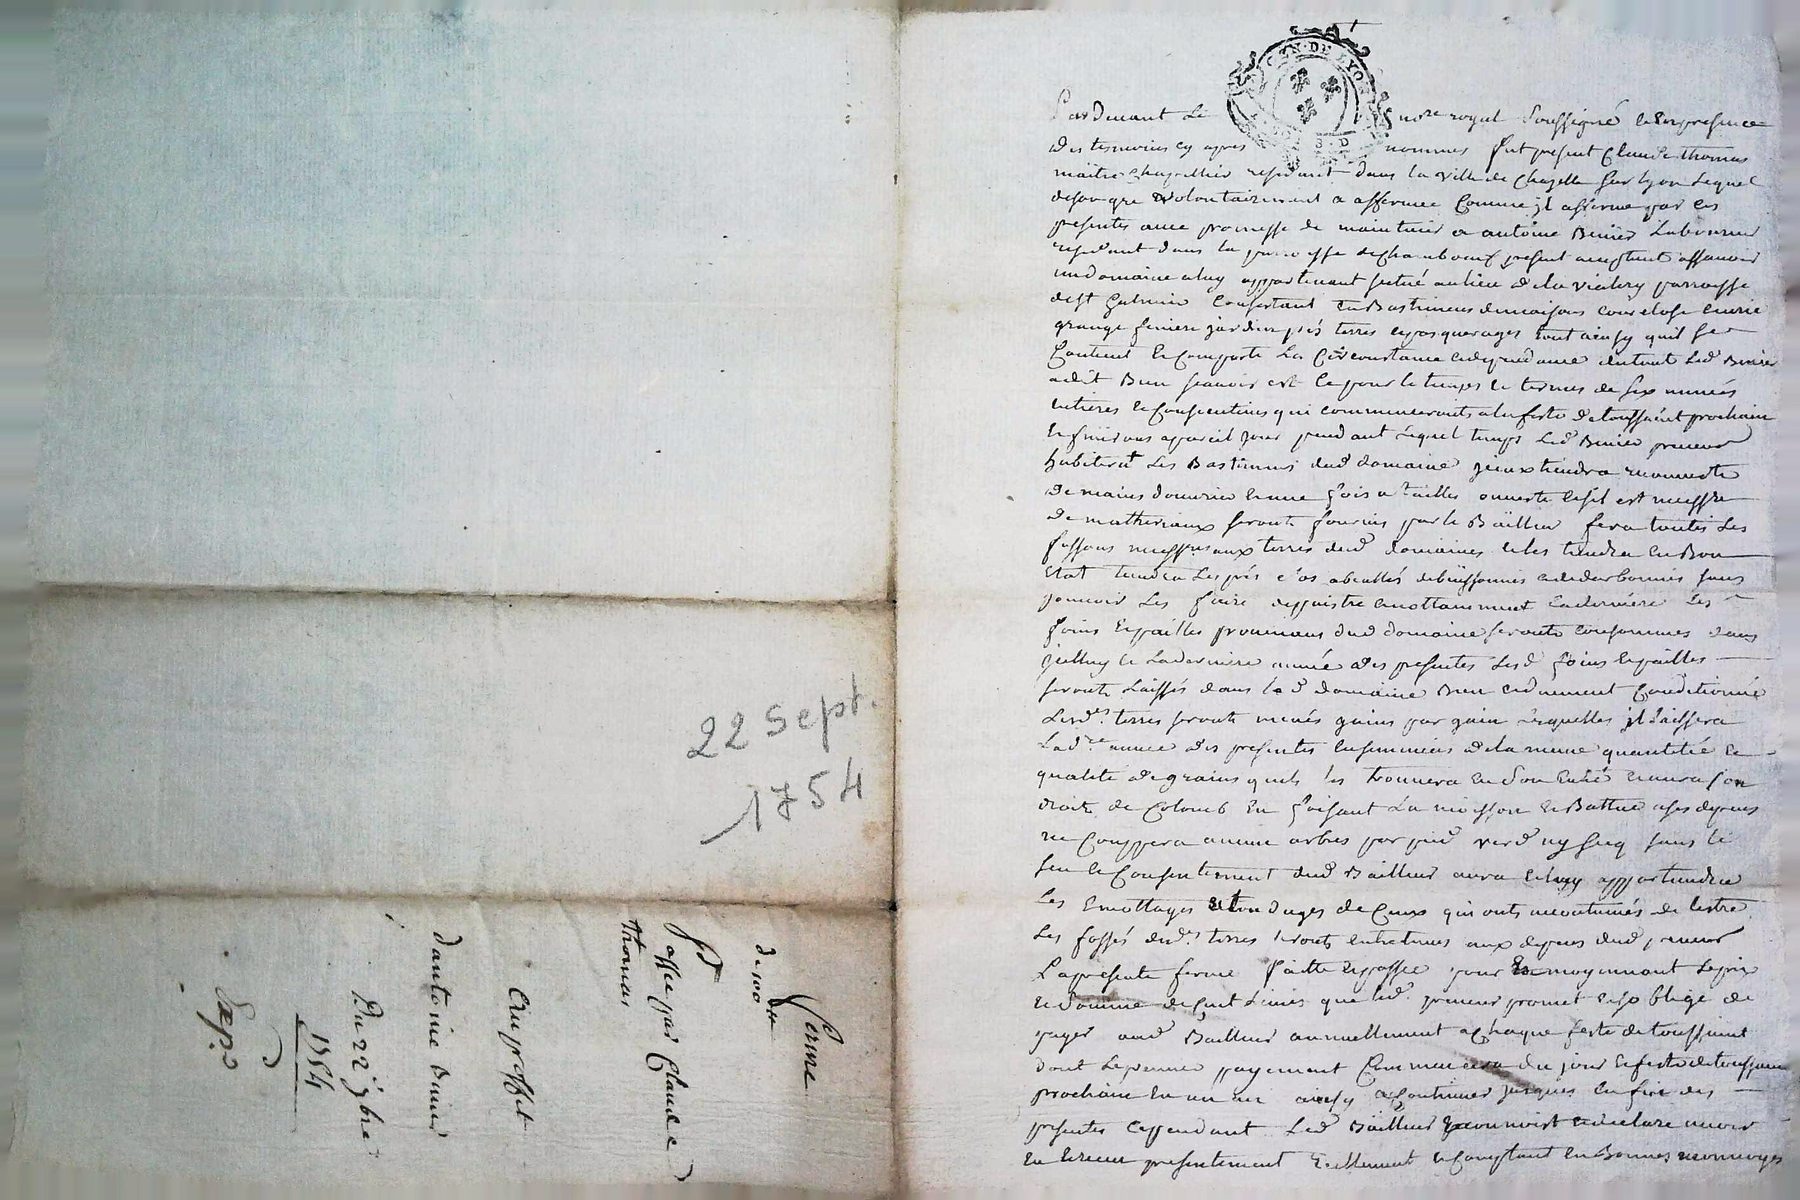 22 Sept.
1754
Ferme
de 100 ##
passée par Claude
Thomas
Au proffit
d'antoine Binier
Du 22 7bre
1754
GEN · DE LYON
Pardevant Le nore royal Soussigné & En presence
des tesmoins cy apres nommes fut present Claude thomas
maitre chapellier residant dans la ville de chazelle sur lyon Lequel
de son gre & volontairement a affermee comme jl afferme par ces
presentes avec promesse de maintenir a antoine Binier Laboureur
residant dans la parroisse de chambœuf present acceptant assavoir
un domaine a luy appartenant situé au lieu de la parroisse
de st Galmier Consistant En Bastiments de maisons cour close Ecurie
grange feniere jardin prés terres & pasquerages tout ainsy quil se
Contient & Comporte Les Circonstance & dependance du tout Led Binier
a dit Bien scavoir & ce pour le temps & termes de six années
entieres & Consecutives qui commenceronts a la feste de toussaint prochain
& finirons a pareil jour pendant Lequel temps Led Binier preneur
habitera Les Bastiments dud domaine jceux tiendra
de mains douvrier & une fois a tailles ouverte & sil est necessre
de matheriaux seronts fournis par le Bailleur fera toutes Les
fossons necessres aux terres dud domaines & les tiendra En Bon
Etat tiendra Les prés clos sans
pouvoir Les faire La derniere Les
foins & pailles provenans dud domaine seronts consommes dans
jcelluy & La derniere année des presentes Lesd foins & pailles
seronts Laissés dans led domaine Bien & düement Conditionné
Lesdes terres seronts menés gains par gain Lesquelles jl Laissera
Lad re année des presentes Ensemencés de la meme quantité &
qualité de grains quil les trouvera En son Entré & aura son
droits de Colomb En faisant La moisson & Battue a ses depens
ne Couppera aucune arbres par pied verd ny secq sans le
sceu & Consentement dud Bailleur aura & luy appartiendra
Les Emottages & Elondages de Ceux qui onts accoutumés de Lestre
Les fossés desd terres seronts entretenus aux depens dud preneur
La presente ferme faitte & passée pour & moyennant Le prix
& somme de Cent Livres que led preneur promet & soblige de
payer aud Bailleur annuellement a Chaque feste de toussaint
dont Le premier payement Commencera du jour & feste de toussaint
prochain En un an ainsy a Continuer jusques En fin des
presentes Cependant Led Bailleur Reconnoist & declare avoir
Eu & receu presentement Reellement & Comptant En Bonnes monnoyes